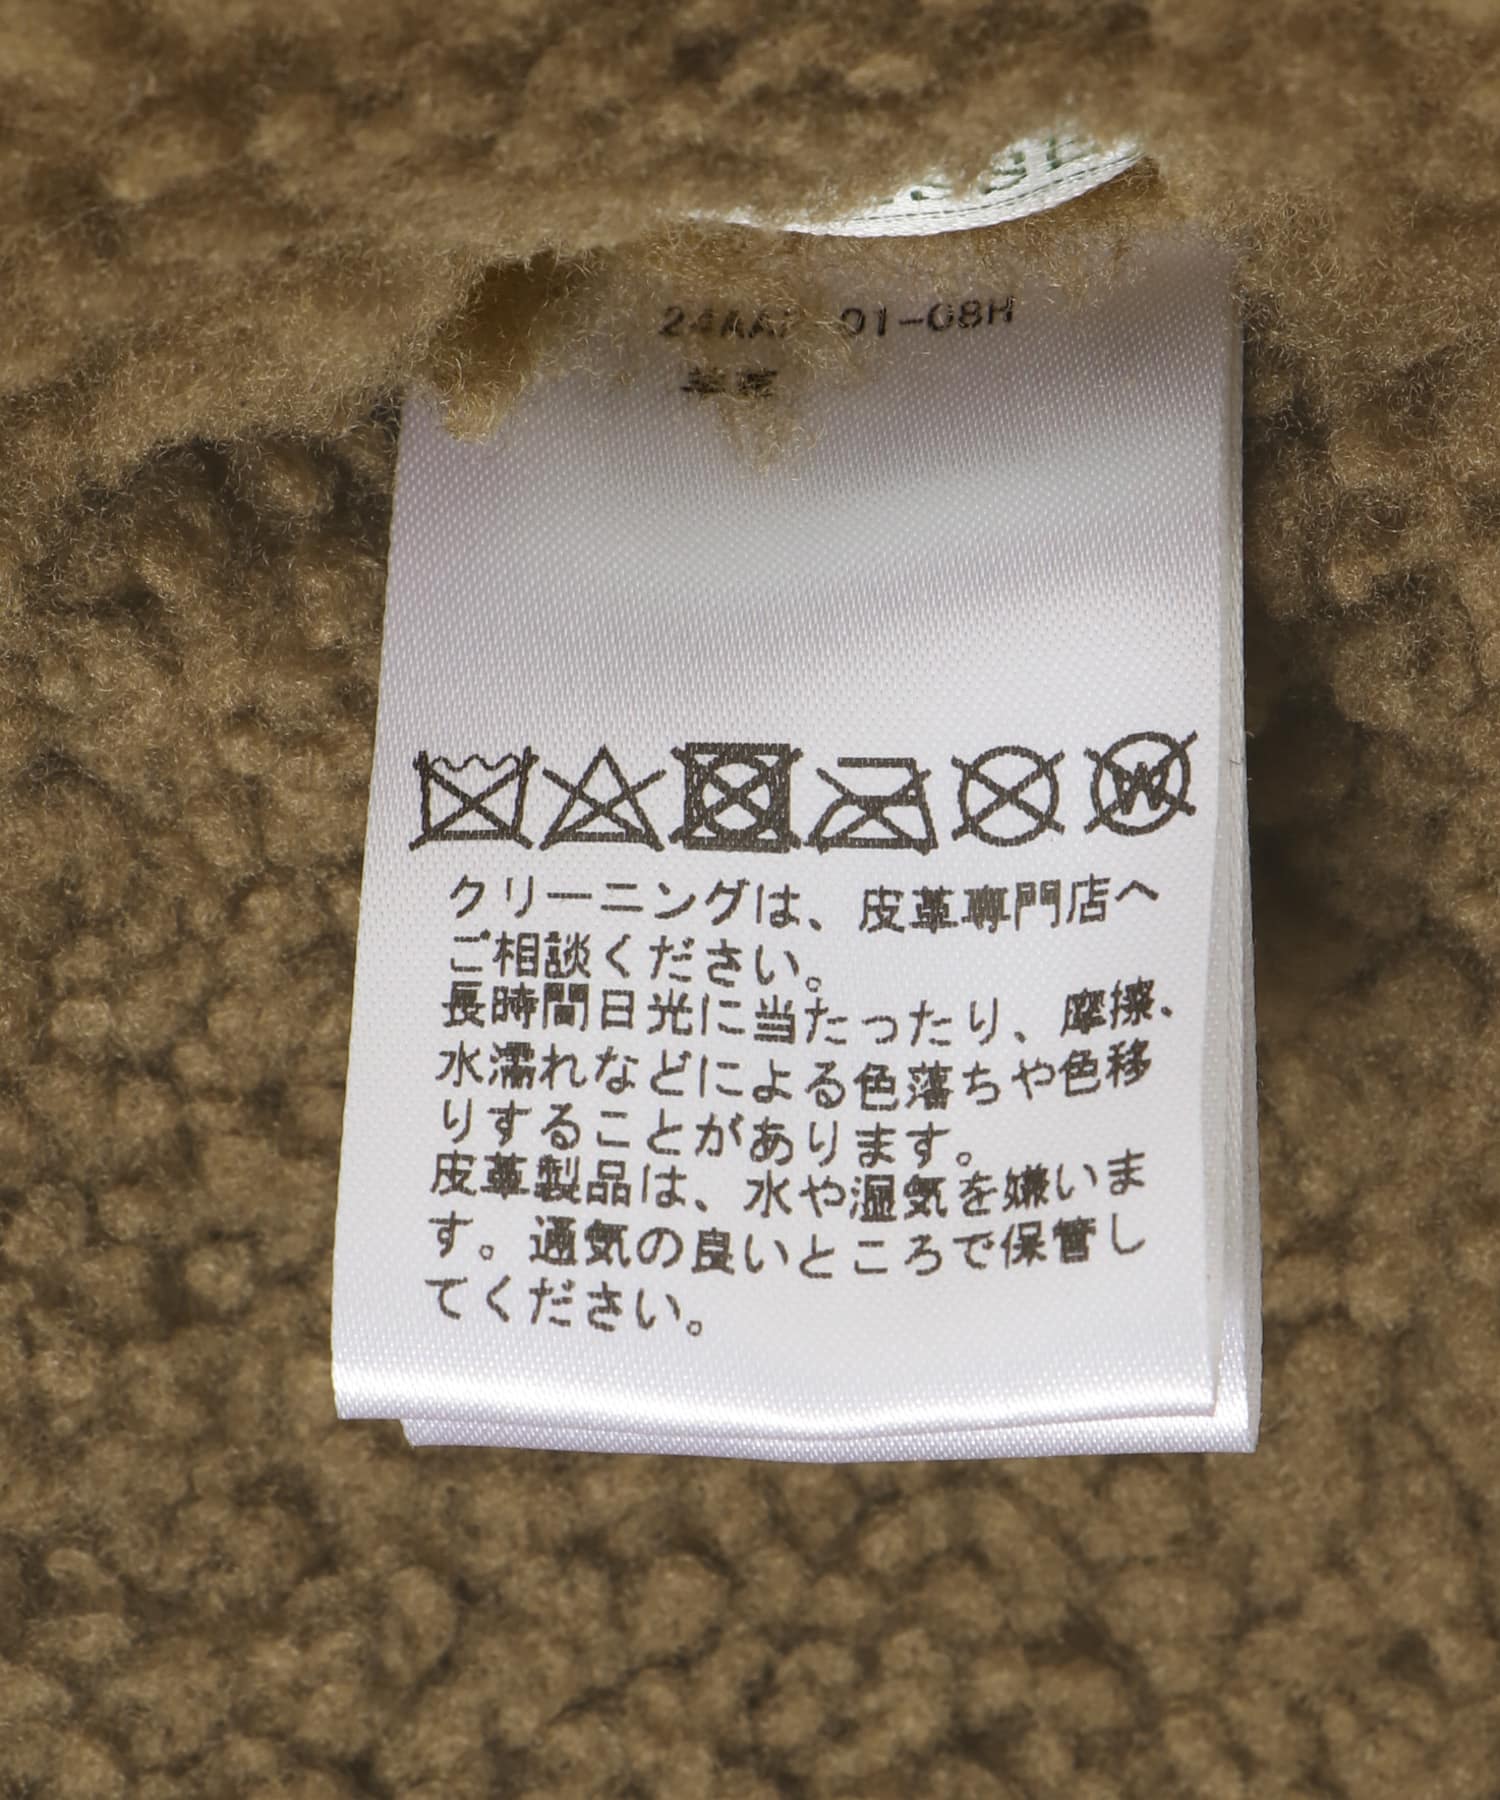 01-08H
クリーニングは、皮革専門店へ
ご相談ください。
長時間日光に当たったり、摩擦、
水濡れなどによる色落ちや色移
りすることがあります。
皮革製品は、水や湿気を嫌いま
す。通気の良いところで保管し
てください。